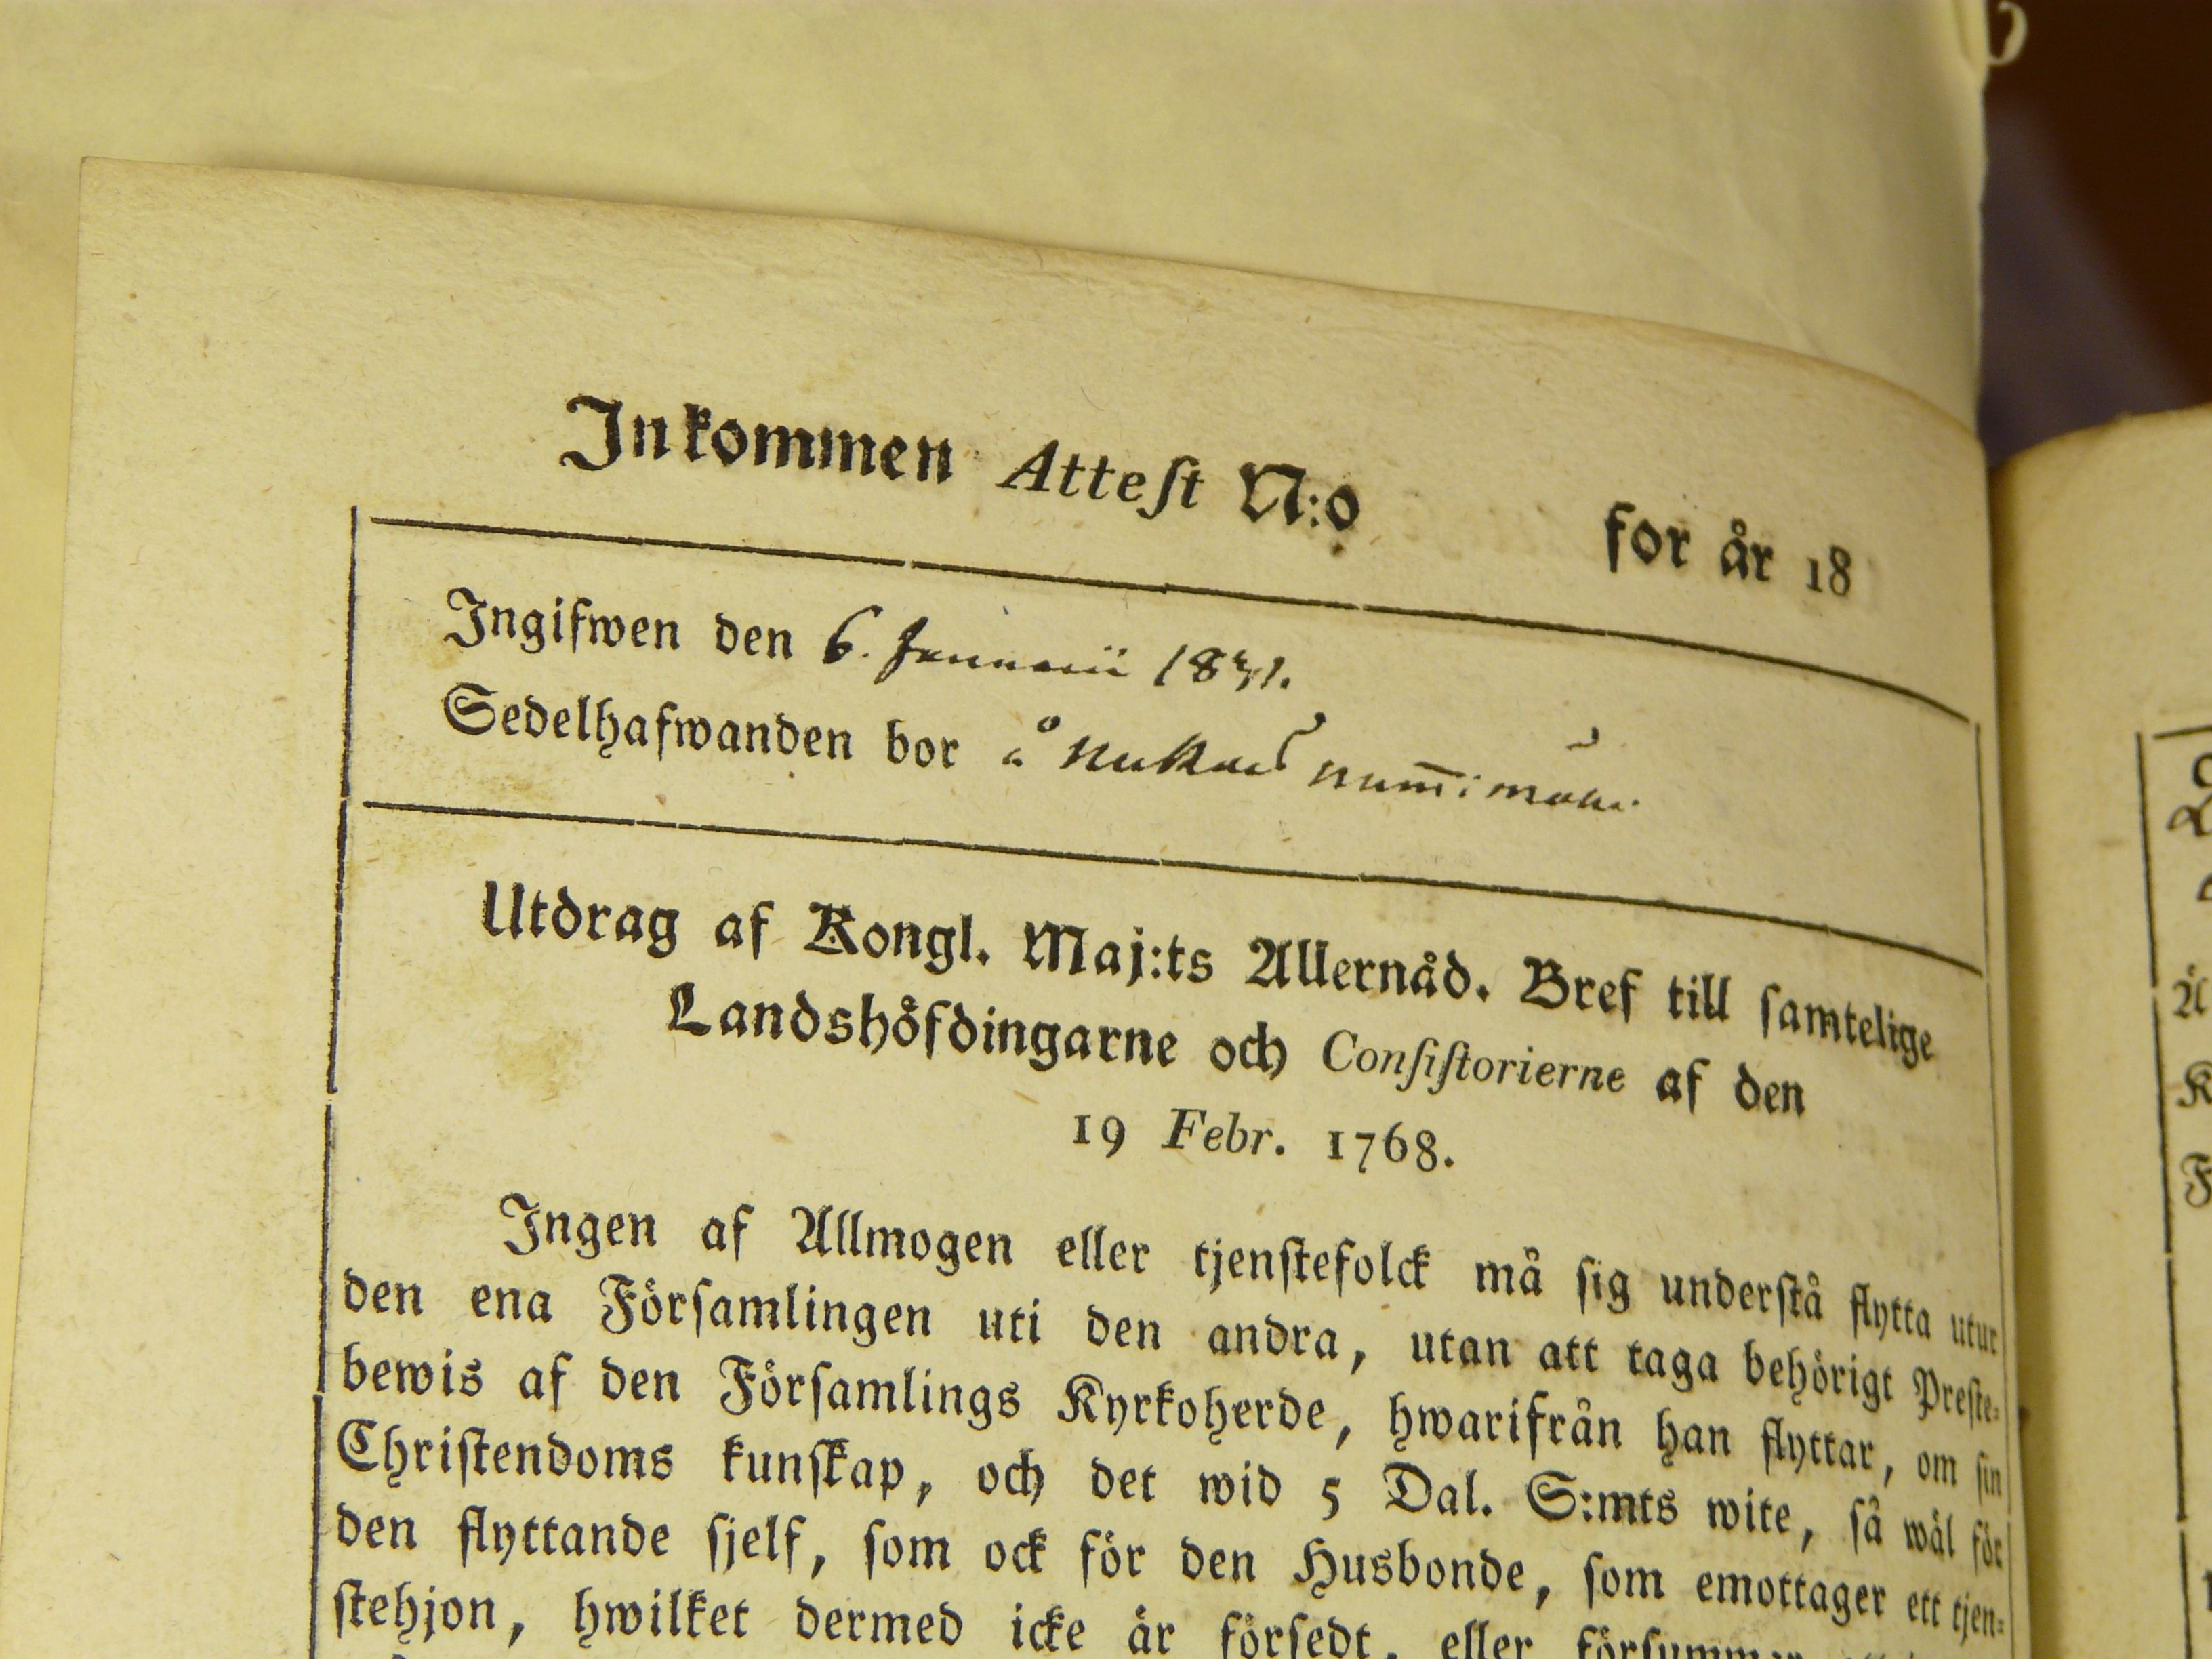 Inkommen Attest N:o for år 18
Ingifwen den 6. Januarii 1831.
Sedelhafwanden bor å
Utdrag af Kongl. Maj:ts Allernåd. Bref till samtelige
Landshöfdingarne och Consistorierne af den
19 Febr. 1768.
Ingen af Allmogen eller tjenstefolck må sig understå flytta utur
den ena Församlingen uti den andra, utan att taga behörigt Preste-
bewis af den Församlings Kyrkoherde, hwarifrån han flyttar, om sin
Christendoms kunskap, och det wid 5 Dal. S:mts wite, så wäl för
den flyttande sjelf, som ock för den Husbonde, som emottager ett tjen-
stehjon, hwilket dermed icke är försedt, eller